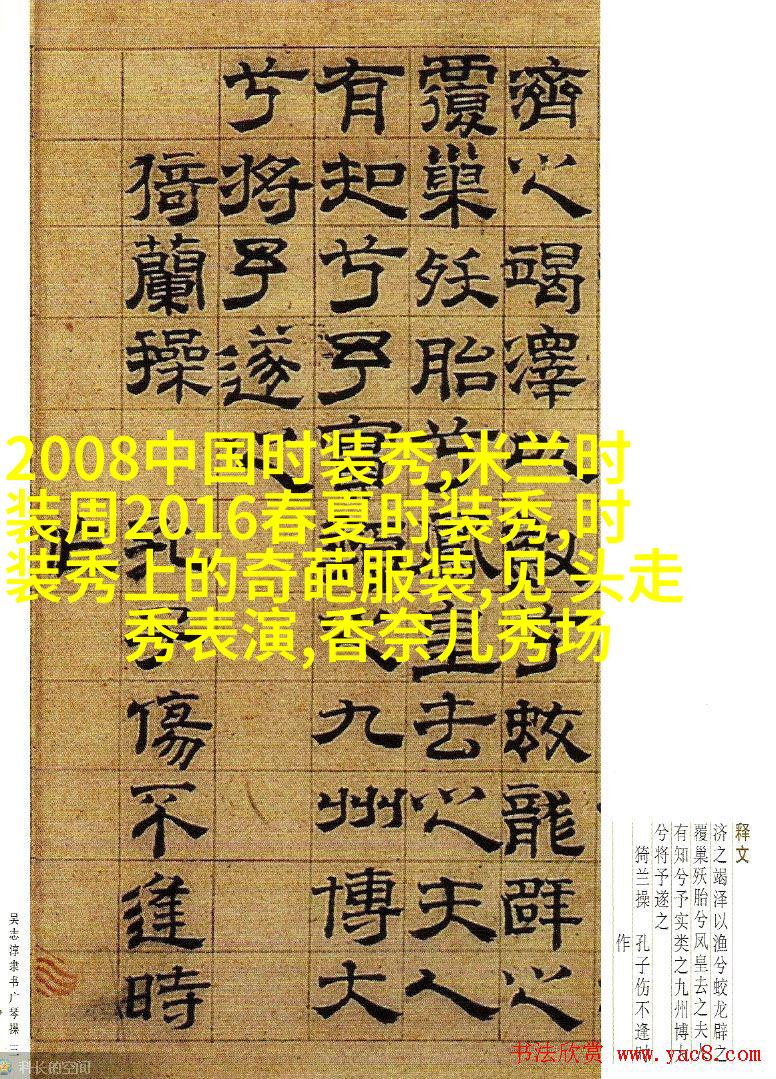 2008中国时装秀,米兰时
装周2016春夏时装秀,时
装秀上的奇葩服装,见 头走
秀表演,香奈儿秀场
濟之竭澤以兮蛟龍辟之
覆巢殀胎兮鳳皇去之夫人
有知兮予實類之九州博大
兮將予遂之
猗蘭操 孔子傷不逢時
作
释文
济之竭泽以渔兮蛟龙辟之
覆巢殀胎兮凤皇去之夫
有知兮予实类之九州博
兮将予遂之
猗兰操 孔子伤不逢
作
吴志淳隶书广琴操 三
科长的空间
书法欣赏 www.yac8.com